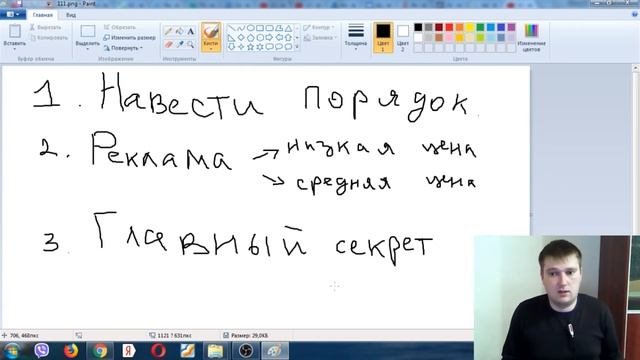 111.png - Paint
Главная Вид
Вставить
Вырезать
Копировать
Буфер обмена
Выделить
Обрезать
Изменить размер
Повернуть
Изображение
Инструменты
Кисти
Фигуры
Контур
Заливка
Толщина
Цвет 1
Цвет 2
Цвета
Изменение цветов
1. Навести порядок.
2. Реклама → низкая цена
→ средняя цена
3. Главный секрет
706, 468пкс
1121 × 631пкс
Размер: 29,0КБ